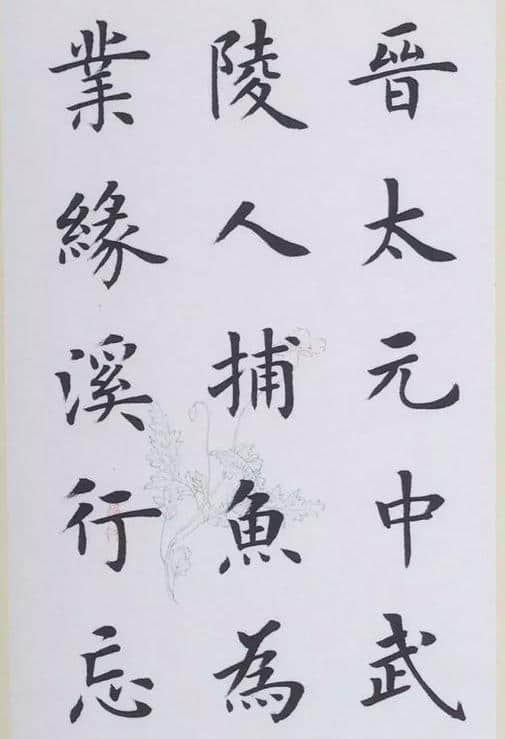 晉太元中武
陵人捕魚為
業緣溪行忘